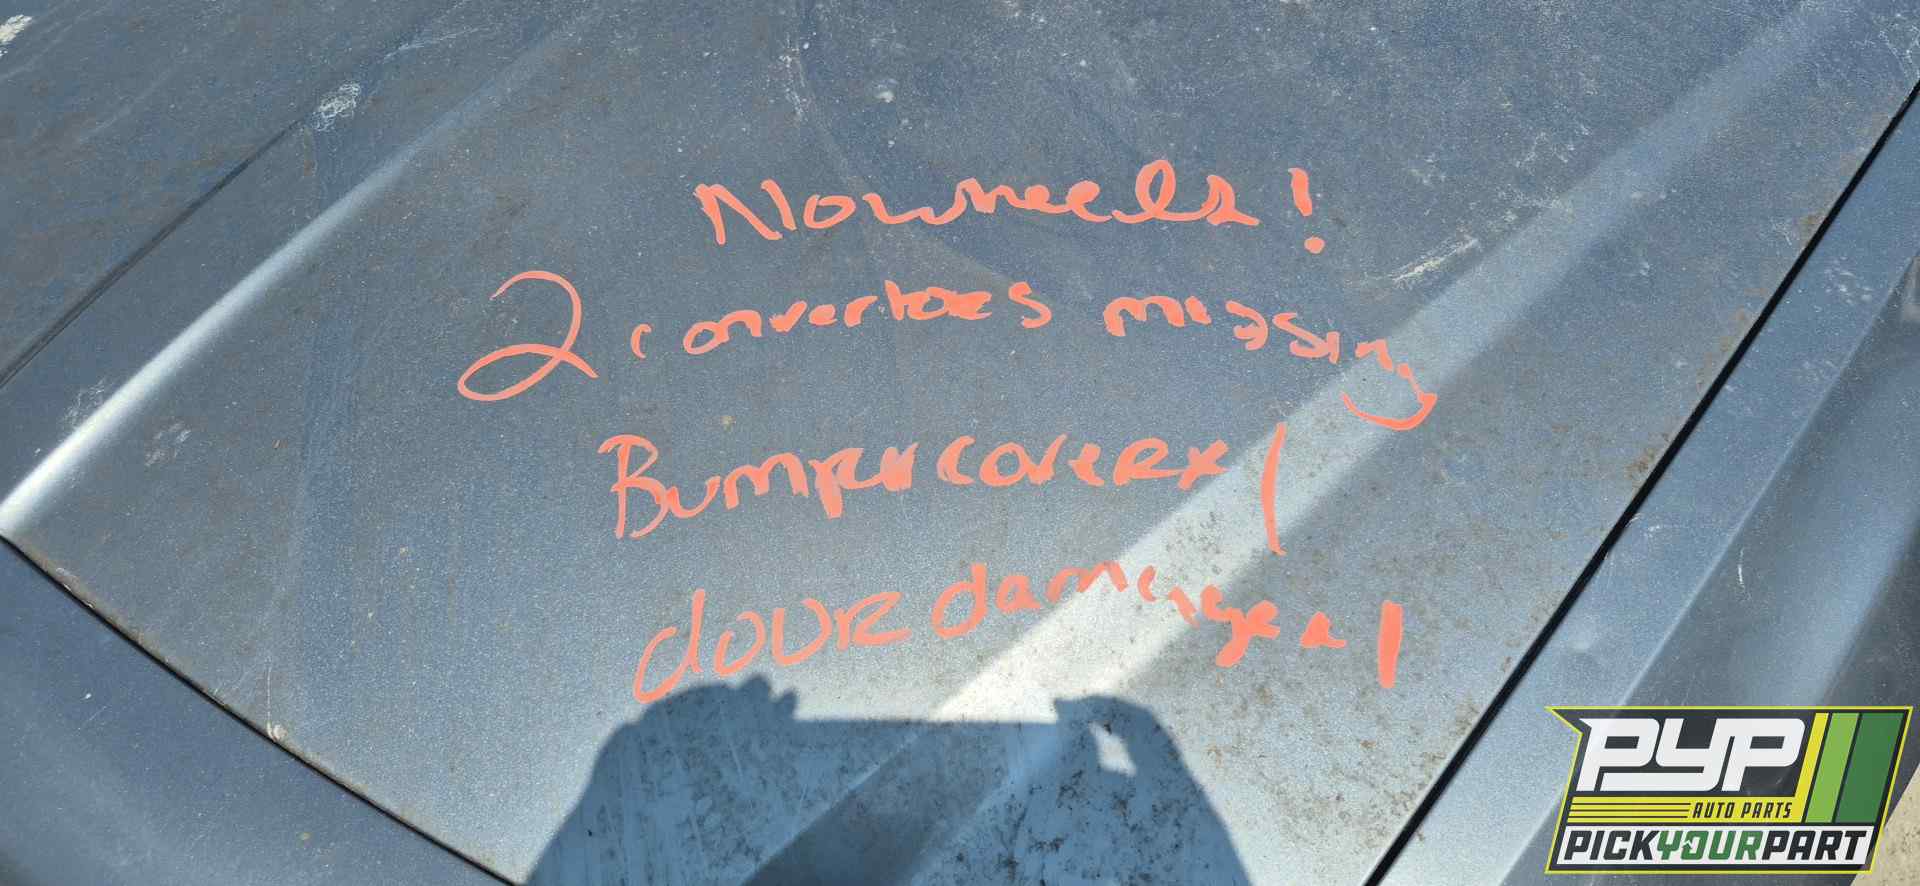 No wheels!
2 converters missing
Bumper cover x1
door damage x1
PYP
AUTO PARTS
PICKYOURPART